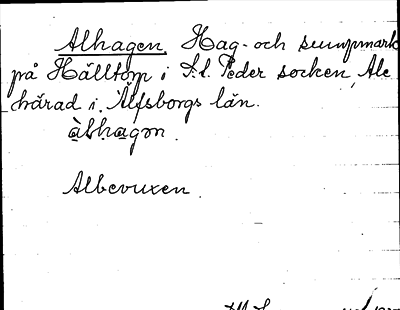 Alhagen. Hag- och sumpmark
på Hälltorp i S:t Peder socken, Ale
härad i Älfsborgs län.
àlhagon.
Albevuxen.